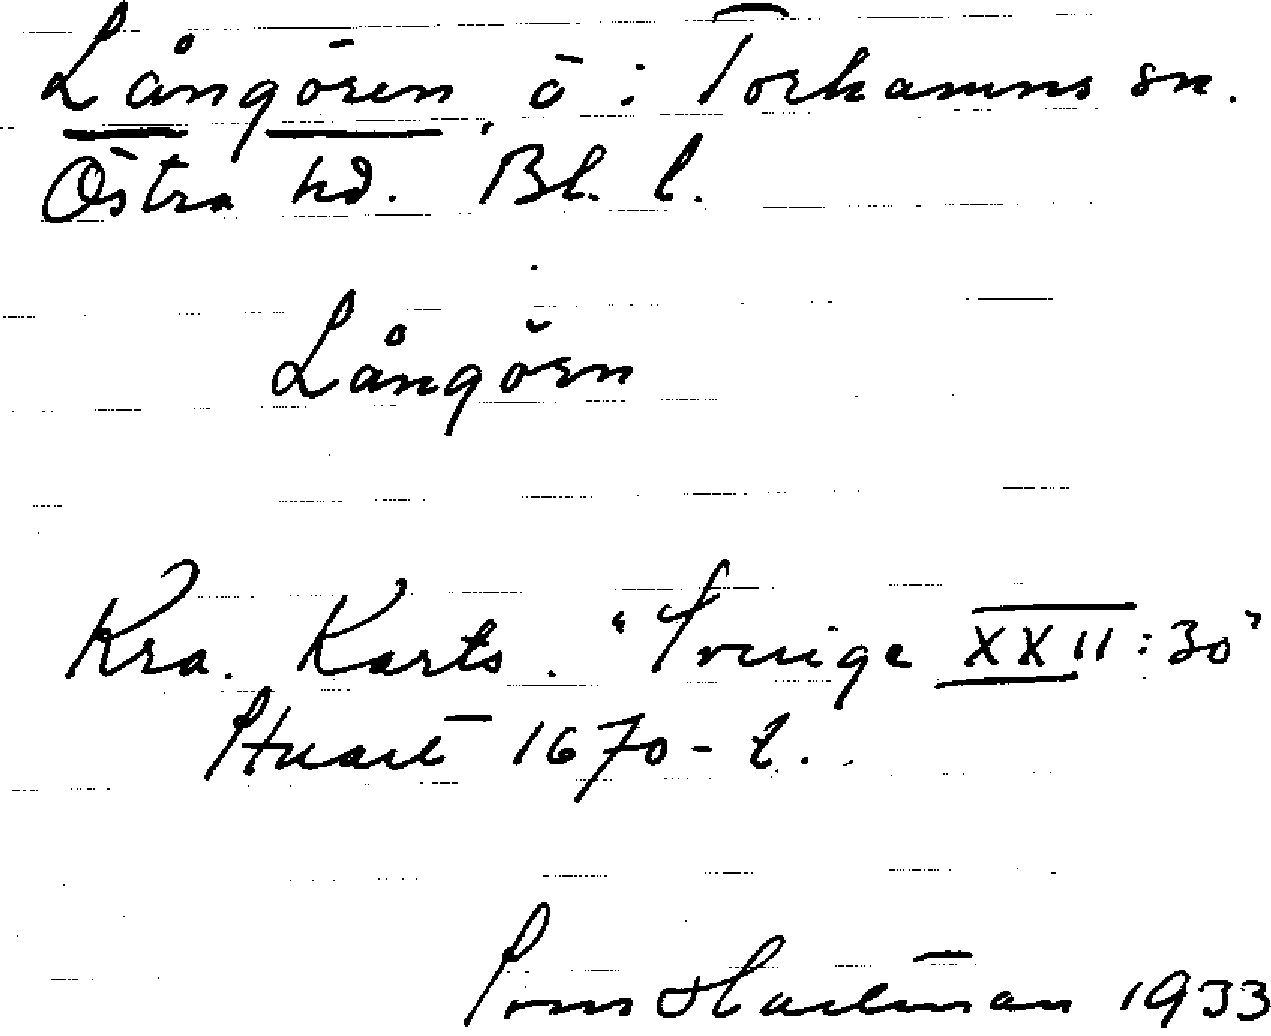 Långören, ö i Torhamns sn.
Östra hd. Bl. l.
Långörn
Kra. Karts. "Sverige XXII:30"
Stuart 1670-t.
Hartman 1933